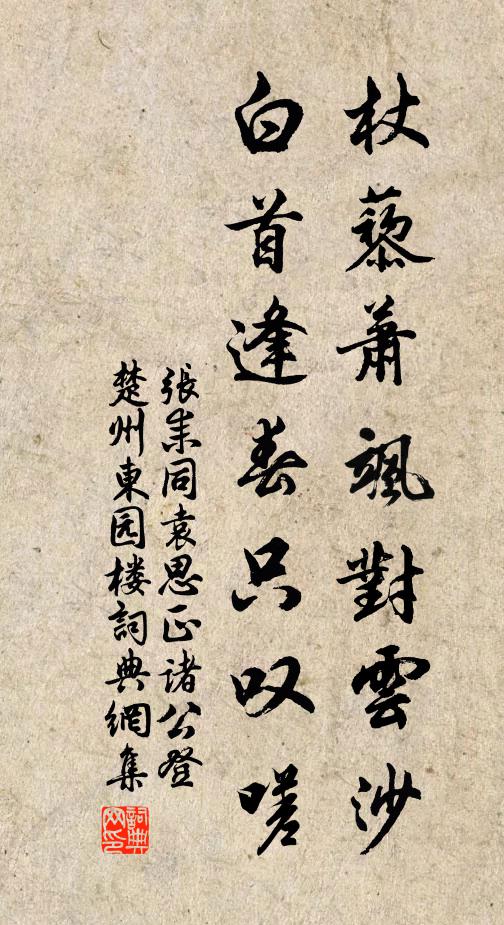 杖藜蕭颯對雲沙
白首逢春只叹嗟
張耒同袁思正诸公登
楚州東园楼詞典網集
詞典网印